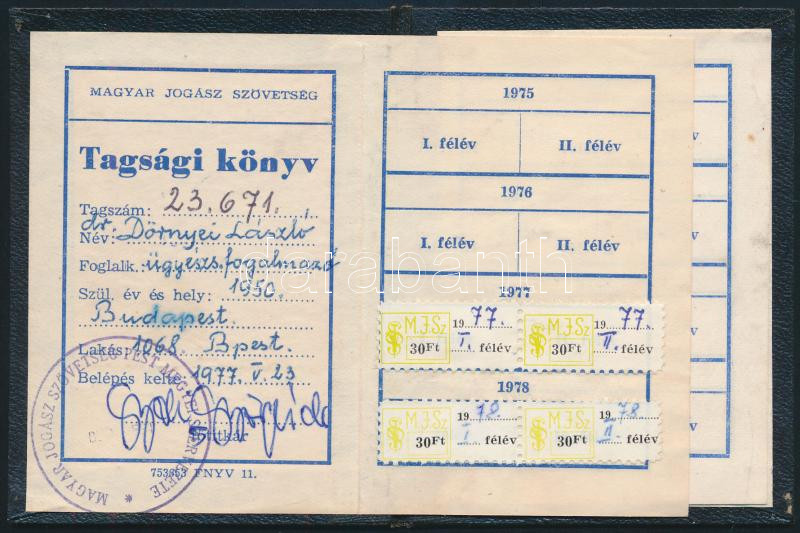 MAGYAR JOGÁSZ SZÖVETSÉG
Tagsági könyv
Tagszám: 23.671.
Név: dr. Dörnyei László
Foglalk. ügyészs. fogalmazó
Szül. év és hely: 1950.
Budapest.
Lakás: 1068. Bpest.
Belépés kelte: 1977. V. 23
titkár
MAGYAR JOGÁSZ SZÖVETSÉG PEST MEGYEI SZERVEZETE *
753653 FNYV 11.
1975
I. félév II. félév
1976
I. félév II. félév
1977
M.J.Sz 30Ft 1977. I. félév
M.J.Sz 30Ft 1977. II. félév
1978
M.J.Sz 30Ft 1978. I félév
M.J.Sz 30Ft 1978. II félév
darabanth